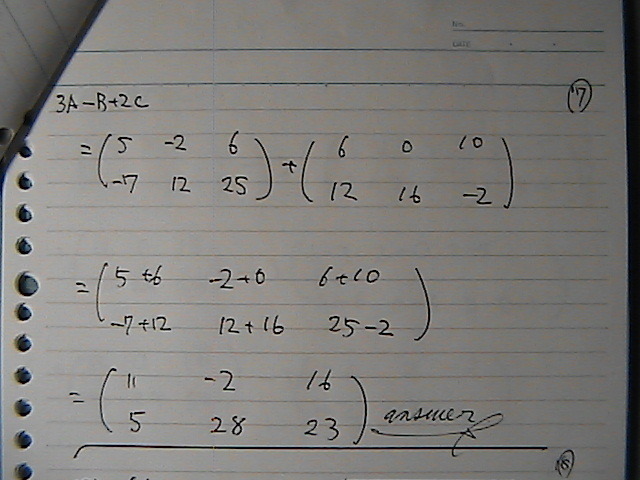 No.
DATE
3A-B+2C
⑦
= ( 5 -2 6 ) + ( 6 0 10 )
-7 12 25 12 16 -2
= ( 5+6 -2+0 6+10 )
-7+12 12+16 25-2
= ( 11 -2 16 )
5 28 23 answer